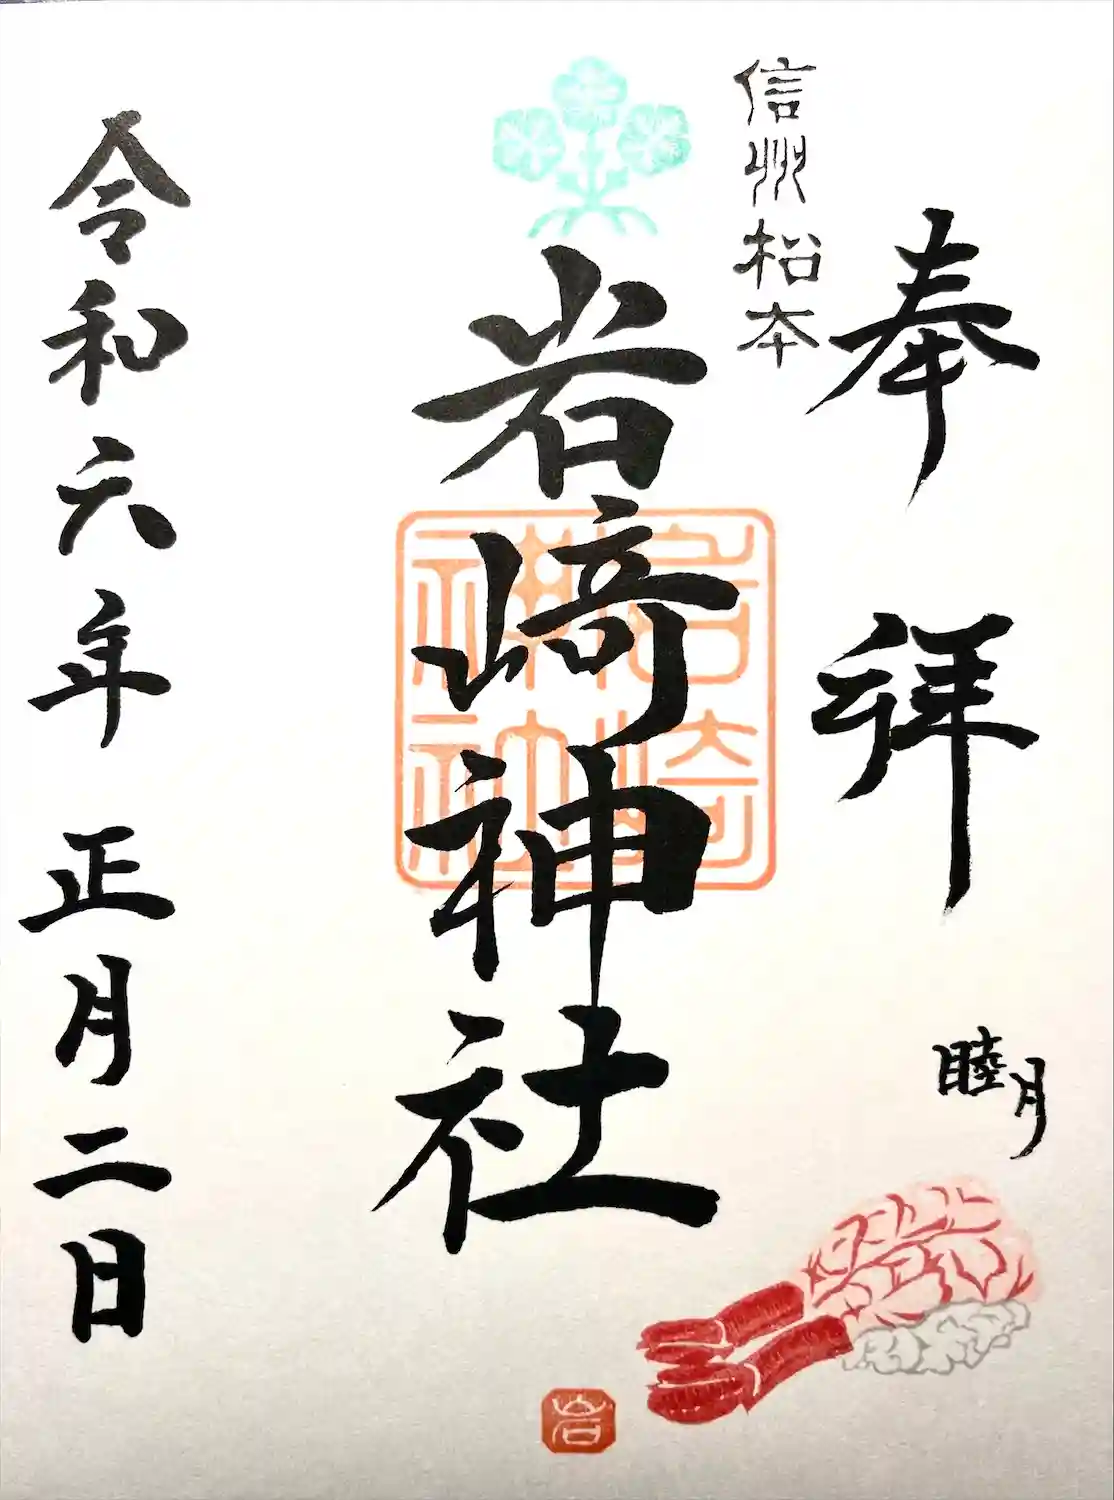 奉拝
睦月
信州松本
岩﨑神社
岩崎神社
岩
令和六年 正月二日